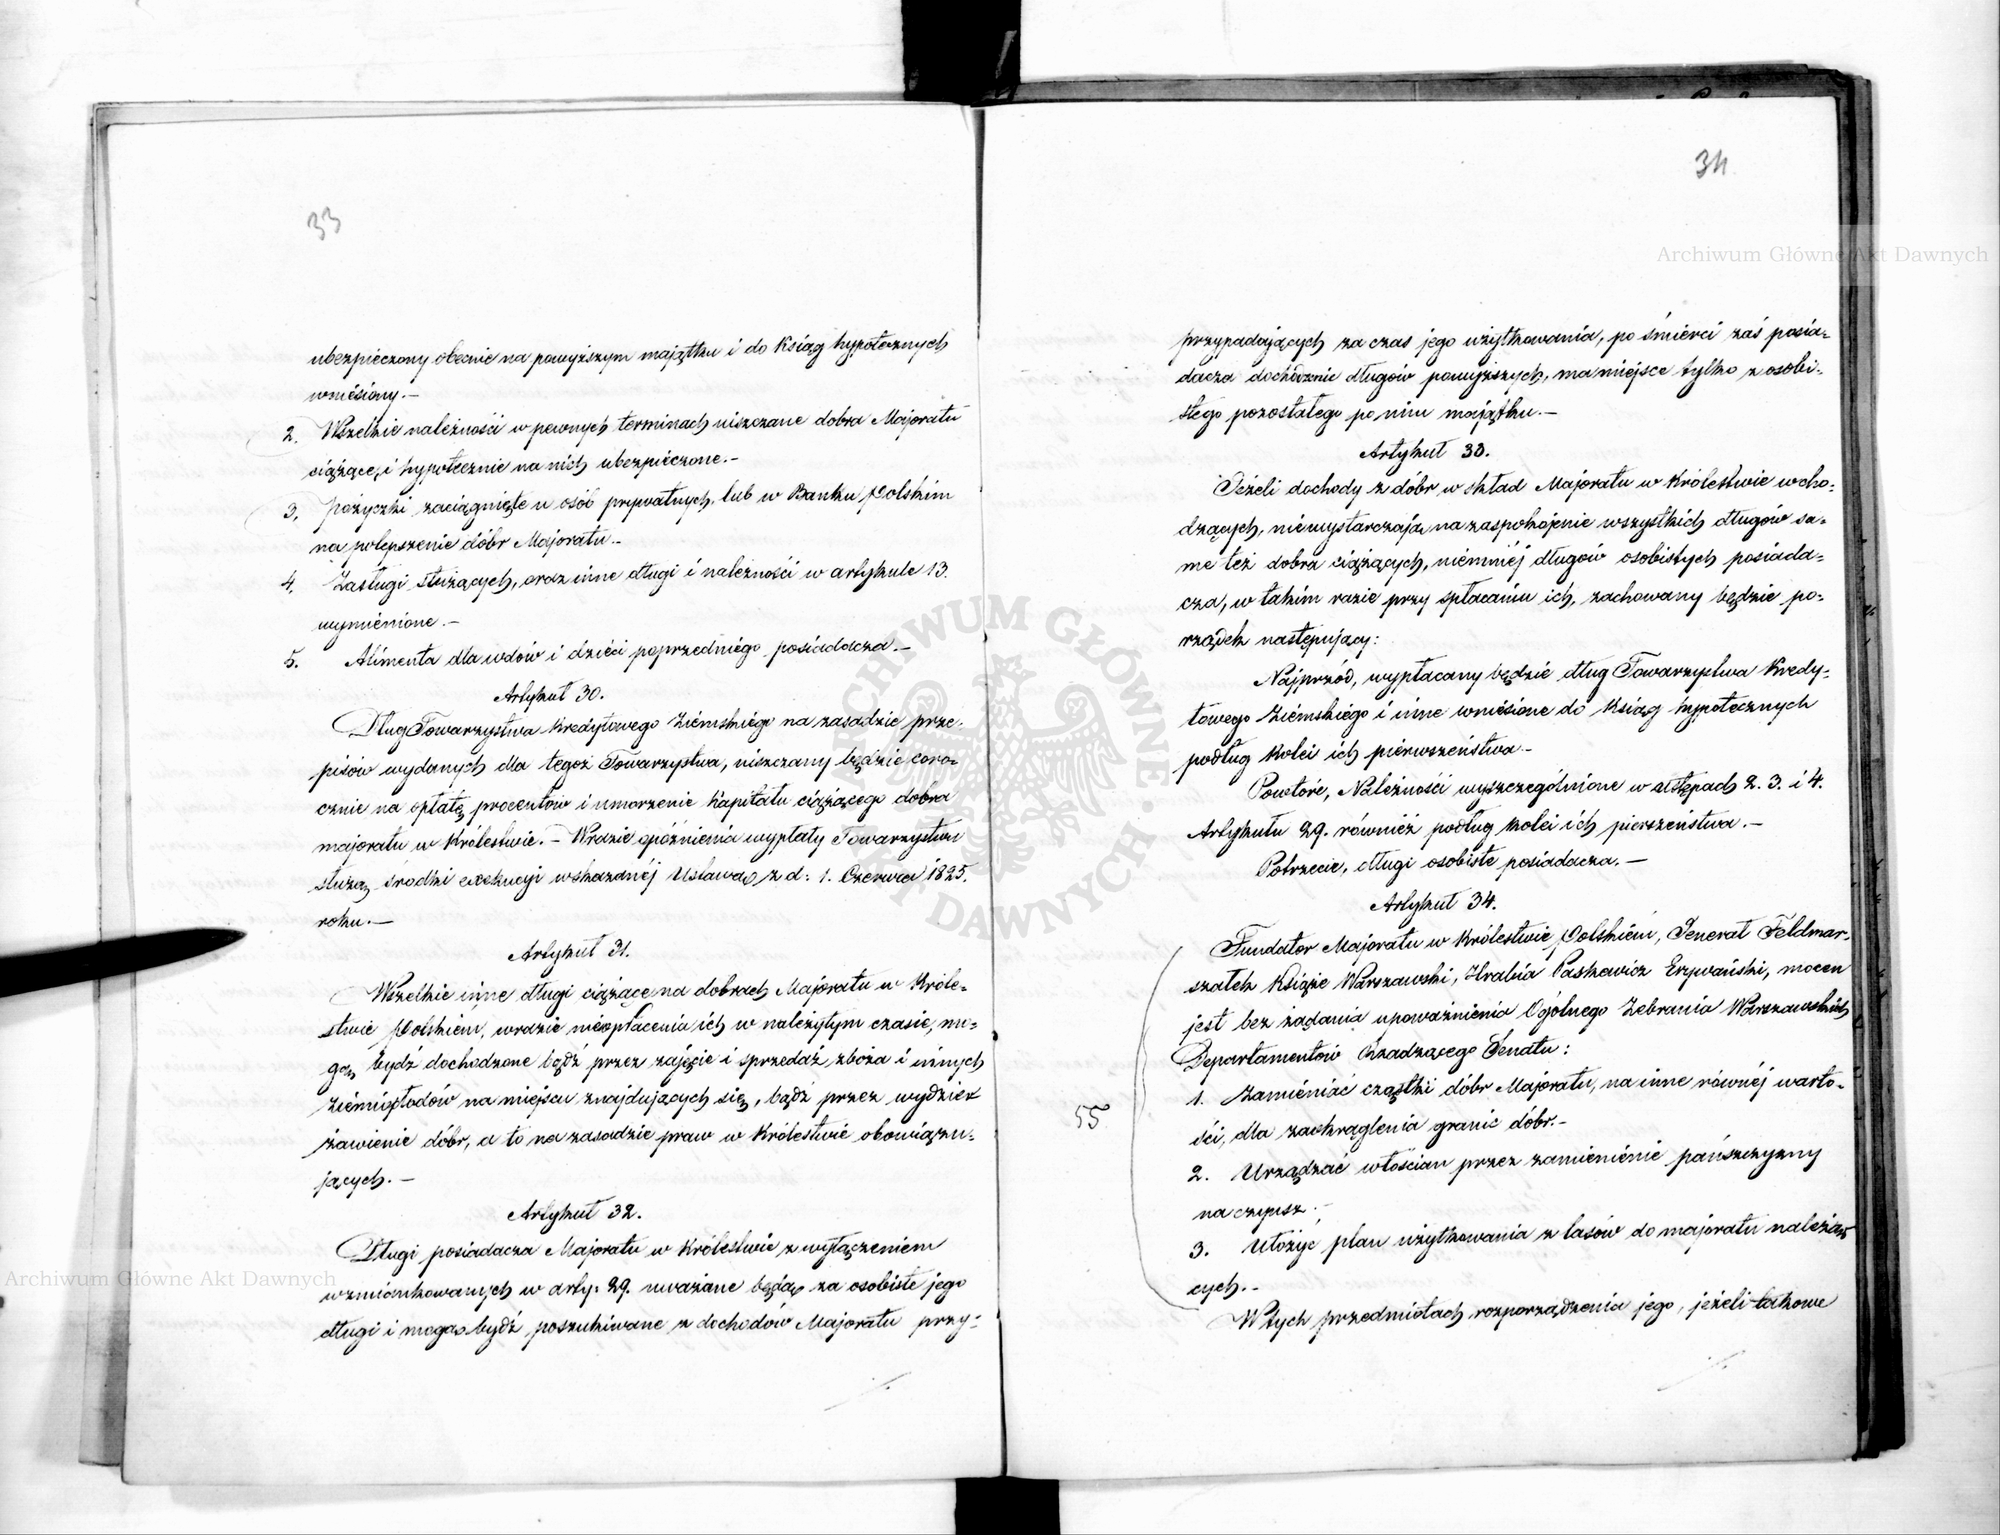 33
ubezpieczony obecnie na powyższym majątku i do Ksiąg hypotecznych
wniésiony.—
2. Wszelkie należności w pewnych terminach uiszczane dobra Majoratu
ciążące, i hypotecznie na nich ubezpieczone.—
3. Pożyczki zaciągnięte u osób prywatnych, lub w Banku Polskim
na polepszenie dóbr Majoratu.—
4. Zasługi służących, oraz inne długi i należności w artykule 13.
wymienione.—
5. Alimenta dla wdów i dzieci poprzedniégo posiadacza.—
Artykuł 30.
Dług Towarzystwa Kredytowego Ziémskiégo na zasadzie prze-
pisów wydanych dla tegoż Towarzystwa, uiszczany będzie coro-
cznie na opłatę procentów i umorzenie Kapitału ciążącego dobra
majoratu w Królestwie.— W razie opóźnienia wypłaty Towarzystwu
służą srodki exekucyi wskazanéj Ustawą z d: 1. Czerwca 1825.
roku.—
Artykuł 31.
Wszelkie inne długi ciążące na dobrach Majoratu w Króle-
stwie Polskiém, w razie nieopłacenia ich w należytym czasie, mo-
gą bydź dochodzone bądź przez zajęcie i sprzedaż zboża i innych
ziémiopłodów na miejscu znajdujących się, bądź przez wydzier
żawienie dóbr, a to na zasadzie praw w Królestwie obowiązu-
jących.—
Artykuł 32.
Długi posiadacza Majoratu w Królestwie z wyłączeniem
wzmiankowanych w arty: 29. uważane będą za osobiste jego
długi i mogą bydź poszukiwane z dochodów Majoratu przy-
34
przypadających za czas jego użytkowania, po śmierci zaś posia-
dacza dochodzenie długów powyższych, ma miéjsce tylko z osobi-
stego pozostałego po nim majątku.—
Artykuł 33.
Jeżeli dochody z dóbr w skład Majoratu w Królestwie wcho-
dzących, niewystarczają na zaspokojenie wszystkich długów sa-
me też dobra ciążących, niémniéj długów osobistych posiada-
cza, w takim razie przy spłacaniu ich, zachowany będzie po-
rządek następujący:
Najprzód, wypłacany będzie dług Towarzystwa Kredy-
towego Ziémskiégo i inne wniésione do Ksiąg hypotecznych
podług kolei ich piérwszeństwa.—
Powtóre, Należności wyszczególnione w ustępach 2. 3. i 4.
Artykułu 29. równiéż podług kolei ich pierszeństwa.—
Potrzecie, długi osobiste posiadacza.—
Artykuł 34.
Fundator Majoratu w Królestwie Polskiém, Jenerał Feldmar-
szałek Książe Warszawski, Hrabia Paskewicz Erywański, mocen
jest bez żądania upoważniénia Ogólnego Zebrania Warszawskich
Departamentów Rządzącego Senatu:
1. Zamiéniać cząstki dóbr Majoratu, na inne równéj warto-
ści, dla zaokrąglenia granic dóbr.—
55
2. Urządzać włościan przez zamienienie pańszczyzny
na czynsz.—
3. Ułożyć plan użytkowania z lasów do majoratu należą
cych.—
W tych przedmiotach, rozporządzenia jego, jeżeli takowe
Archiwum Główne Akt Dawnych
Archiwum Główne Akt Dawnych
ARCHIWUM GŁÓWNE AKT DAWNYCH